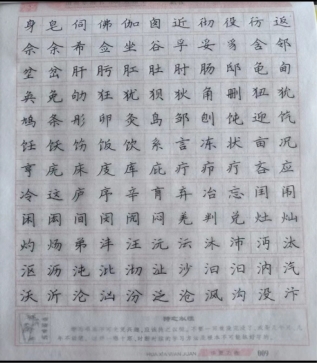 身皂伺佛伽囱近彻役彷返
佘余希佥坐谷孚妥豸含邻
岔岔肝肟肛肚肘肠邸龟甸
奂免劬狂犹狈狄角删狃犹
鸠条彤卵灸鸟邹刨饨迎饩
饪饫饬饭饮系言冻状亩况
亨庑床庋库庇疔疖疗吝应
冷这庐序辛育弃冶忘闰闹
闲闳间闵闶闷羌判兑灶灿
灼炀弟沣汪沅沄沐沛沔汰
沤沥沌沘沏沚沙汩汨汭汽
沃沂沦汹汾泛沧沨沟没汴